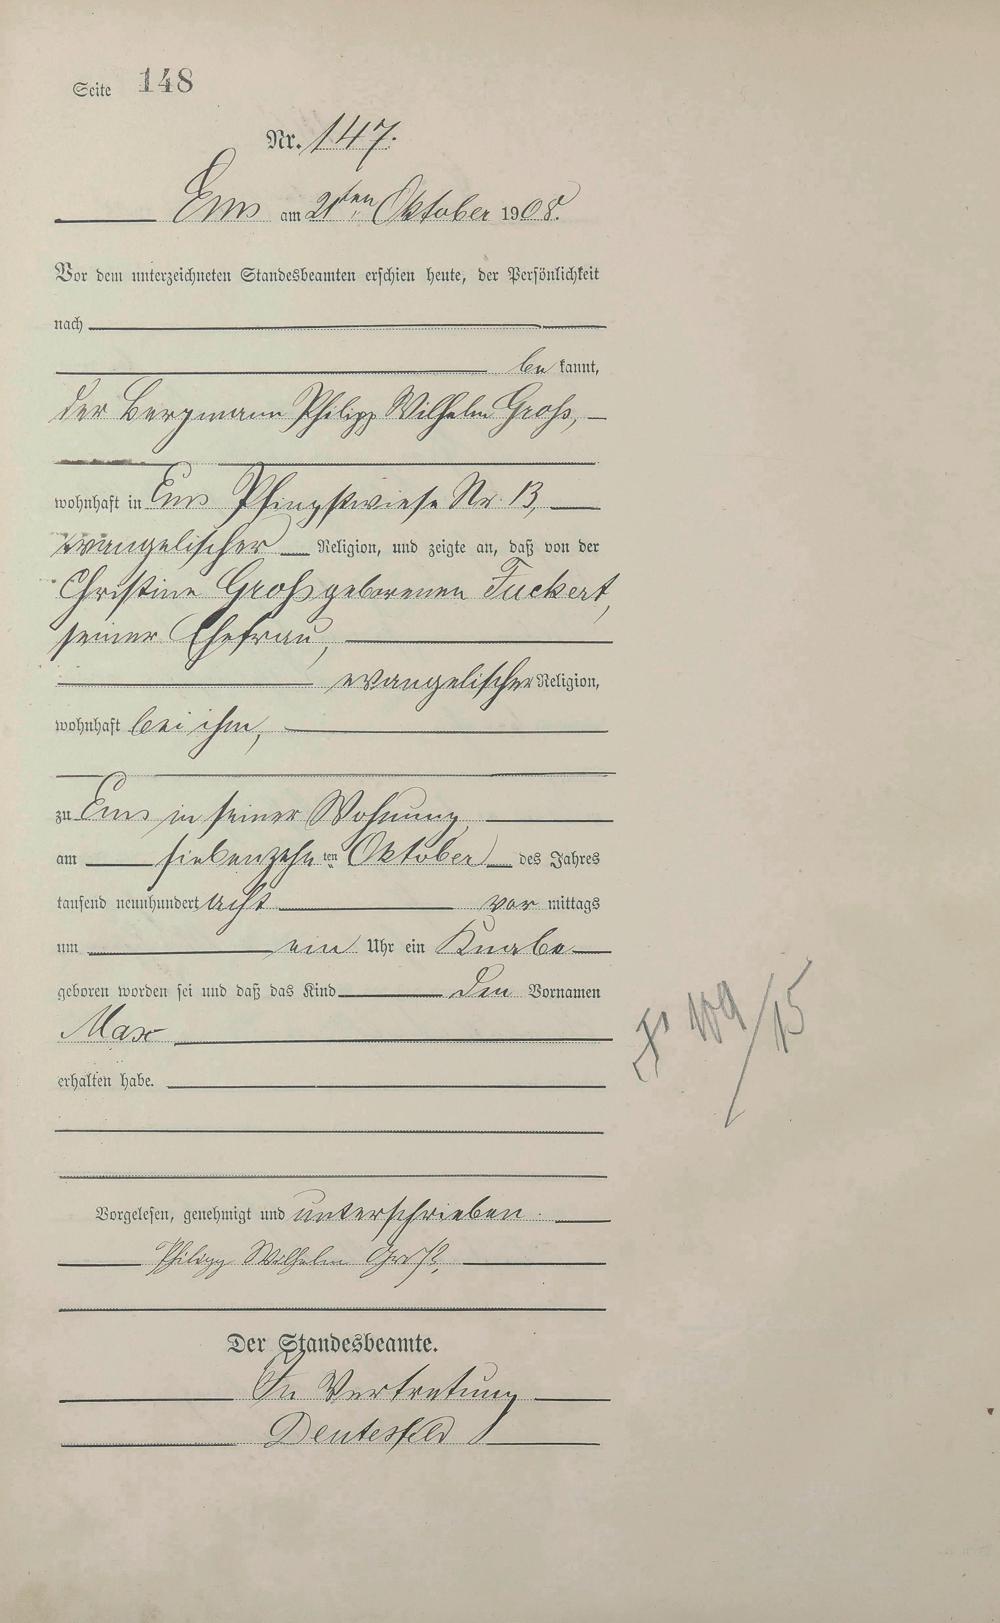 Seite 148
Nr. 147.
Ems am 21ten Oktober 1908.
Vor dem unterzeichneten Standesbeamten erschien heute, der Persönlichkeit
nach
be kannt,
der Bergmann Philipp Wilhelm Groß,
wohnhaft in Ems Pfingstwiese Nr. 13,
evangelischer Religion, und zeigte an, daß von der
Christine Groß geborenen Fuckert,
seiner Ehefrau,
evangelischer Religion,
wohnhaft bei ihm,
zu Ems in seiner Wohnung
am siebenzehn ten Oktober des Jahres
tausend neunhundert acht vor mittags
um ein Uhr ein Knabe
geboren worden sei und daß das Kind den Vornamen
Max
erhalten habe.
109/15
Vorgelesen, genehmigt und unterschrieben.
Philipp Wilhelm Groß,
Der Standesbeamte.
In Vertretung